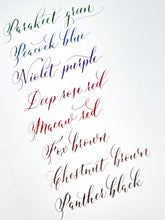 Parakeet green
Peacock blue
Violet purple
Deep rose red
Macaw red
Fox brown
Chestnut brown
Panther black